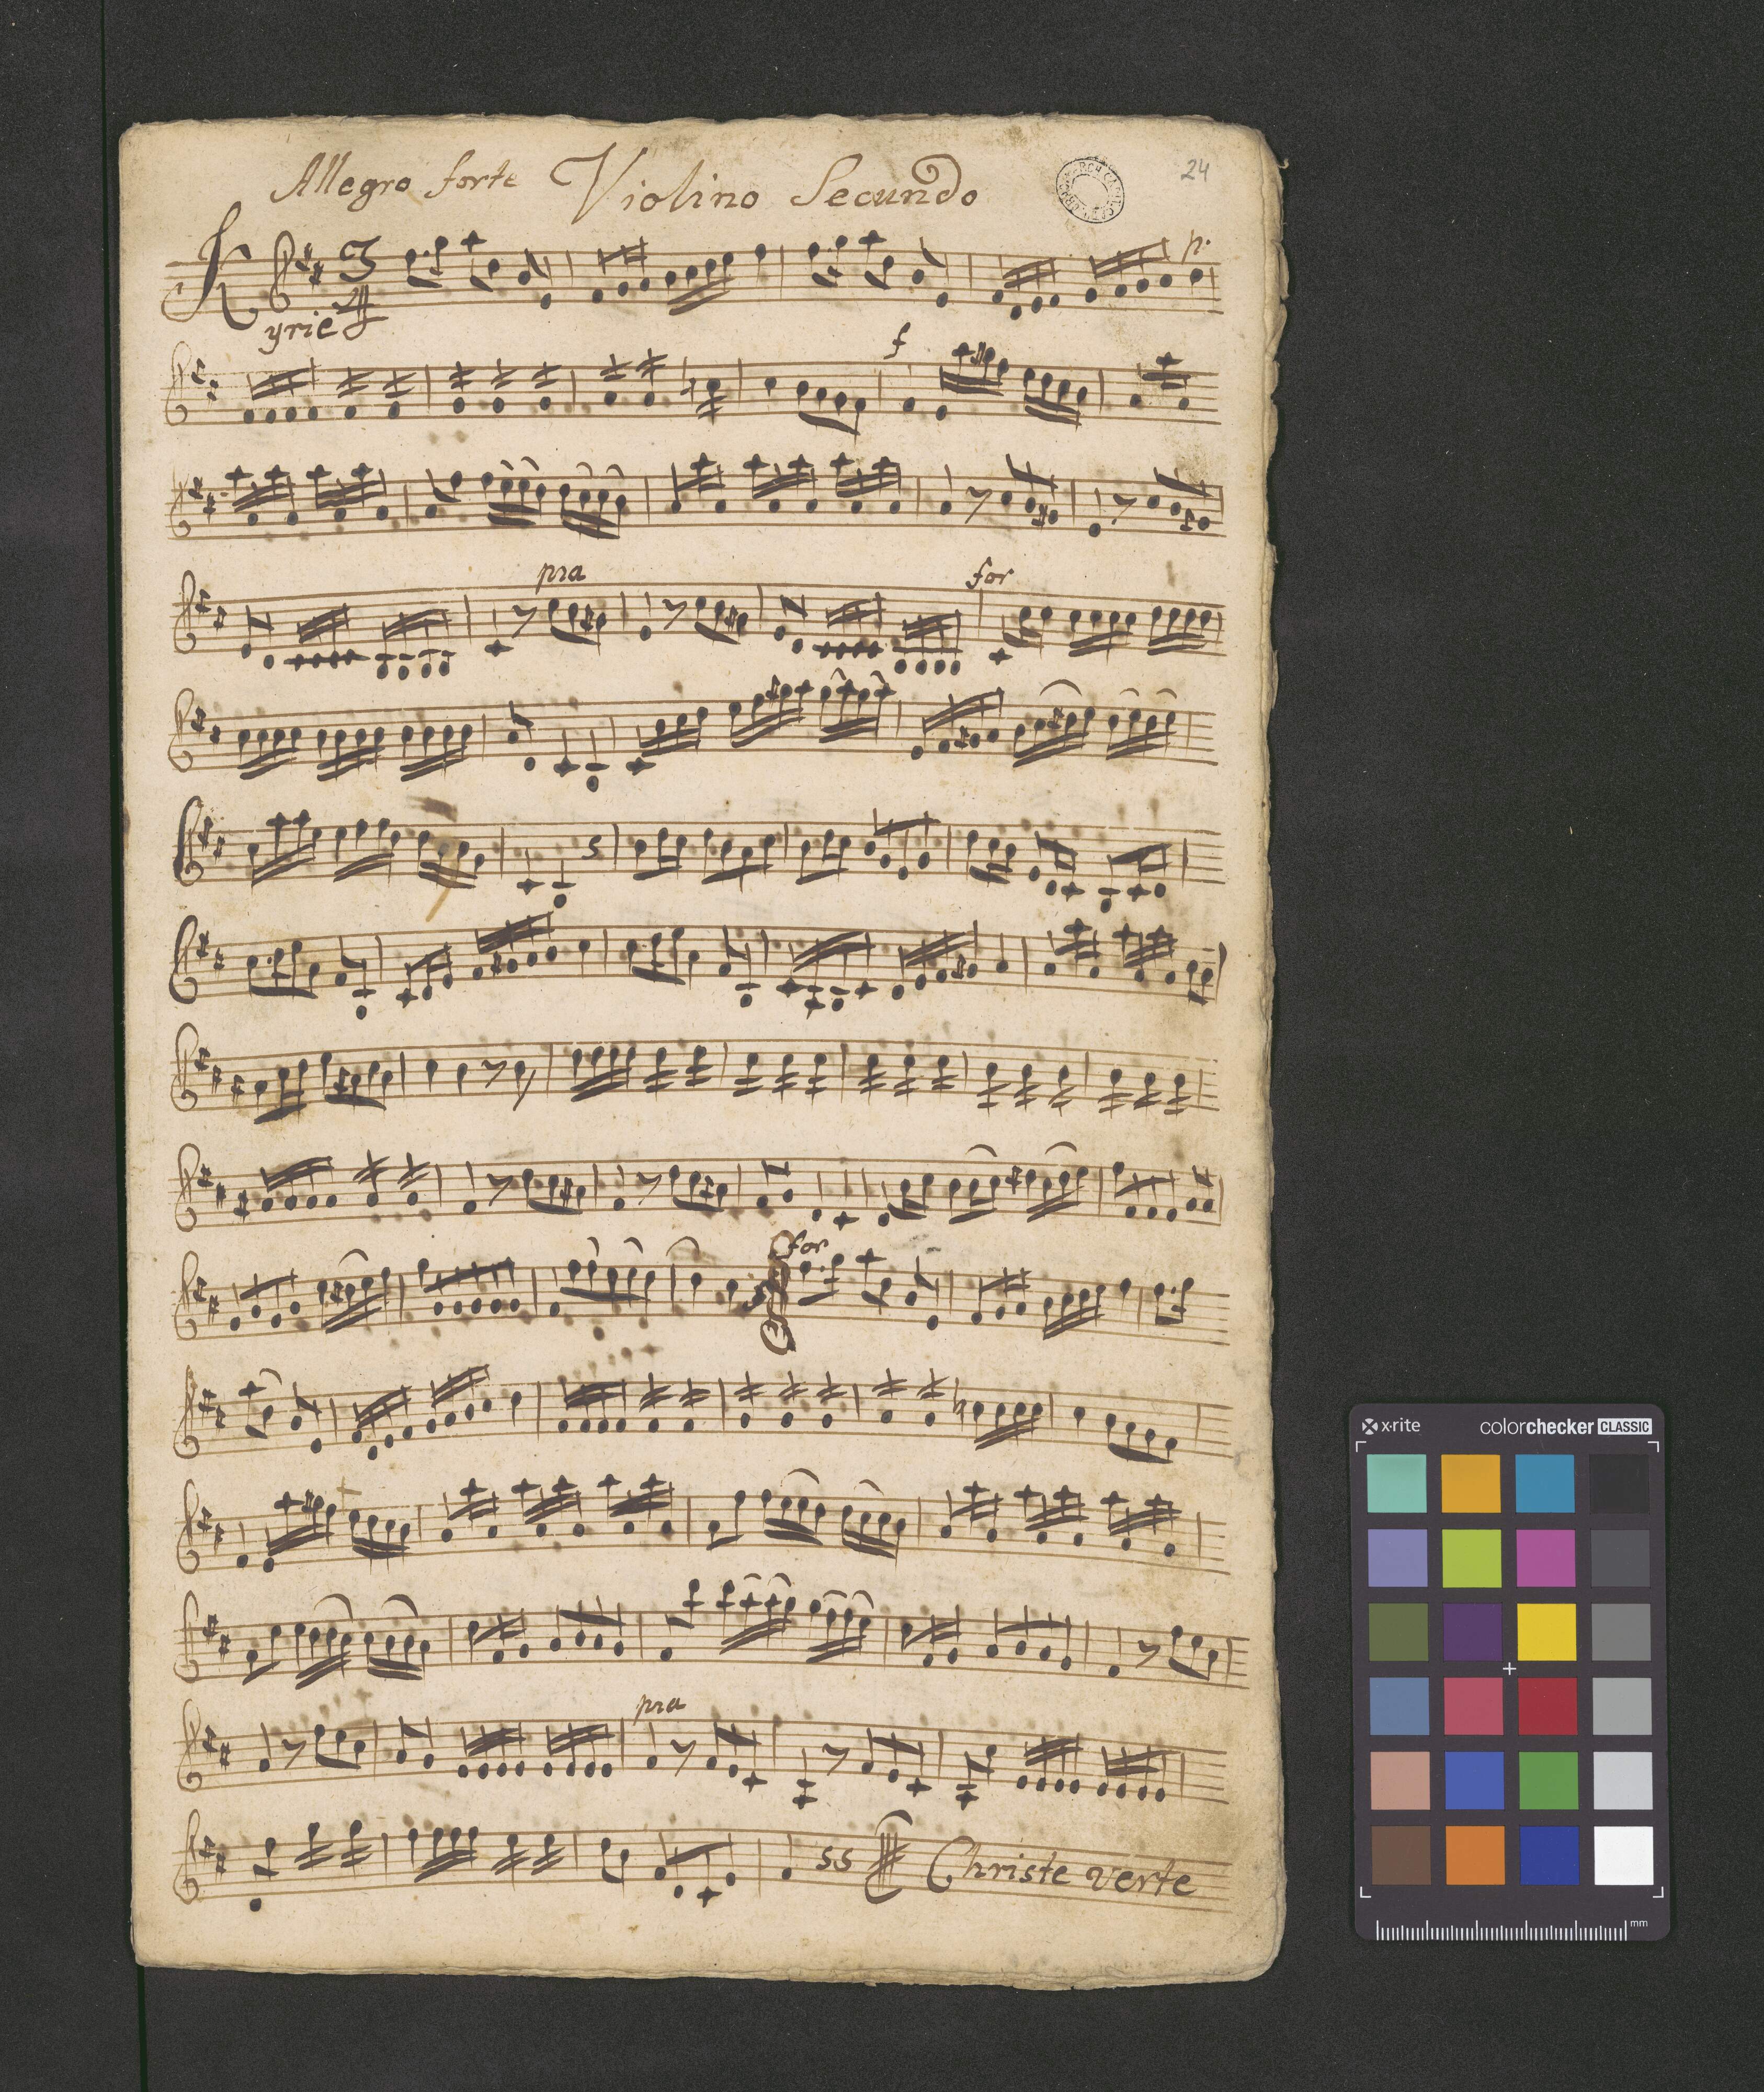 24
Allegro forte Violino Secundo
Kyrie
3
4
p.
f
pia
for
for
pia
ss Christe verte
x-rite colorchecker CLASSIC
mm